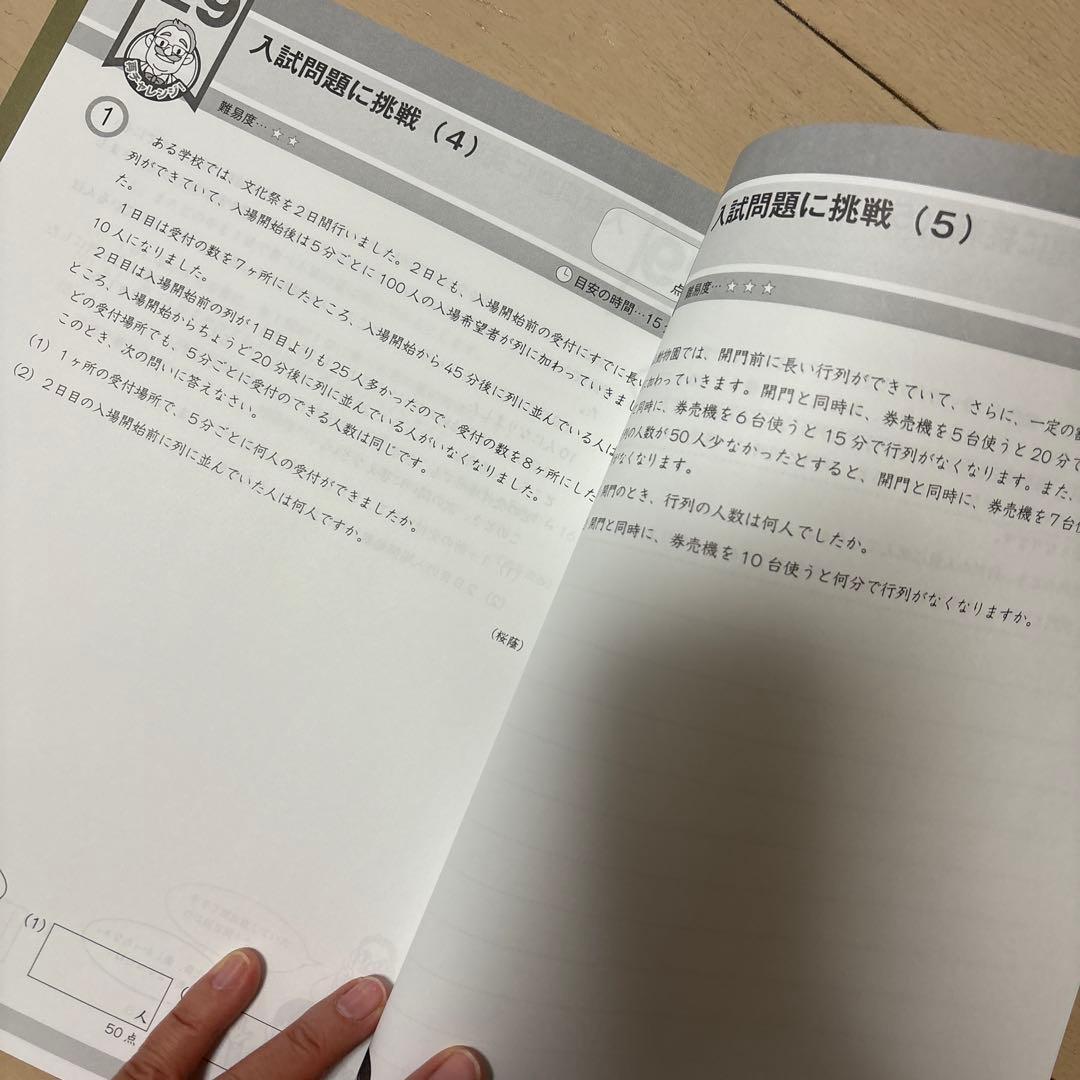 29
真チャレンジ!
入試問題に挑戦(4)
難易度…☆☆
目安の時間…15
点
1
ある学校では、文化祭を2日間行いました。2日とも、入場開始前の受付にすでに長い
列ができていて、入場開始後は5分ごとに100人の入場希望者が列に加わっていきまし
た。
1日目は受付の数を7ヶ所にしたところ、入場開始から45分後に列に並んでいる人は
10人になりました。
2日目は入場開始前の列が1日目よりも25人多かったので、受付の数を8ヶ所にした
ところ、入場開始からちょうど20分後に列に並んでいる人がいなくなりました。
どの受付場所でも、5分ごとに受付のできる人数は同じです。
このとき、次の問いに答えなさい。
(1) 1ヶ所の受付場所で、5分ごとに何人の受付ができましたか。
(2) 2日目の入場開始前に列に並んでいた人は何人ですか。
(桜蔭)
(1)
人
50点
入試問題に挑戦(5)
難易度…☆☆☆
動物園では、開門前に長い行列ができていて、さらに、一定の
に加わっていきます。開門と同時に、券売機を5台使うと20分で
同時に、券売機を6台使うと15分で行列がなくなります。また、
列の人数が50人少なかったとすると、開門と同時に、券売機を7台
がなくなります。
開門のとき、行列の人数は何人でしたか。
開門と同時に、券売機を10台使うと何分で行列がなくなりますか。